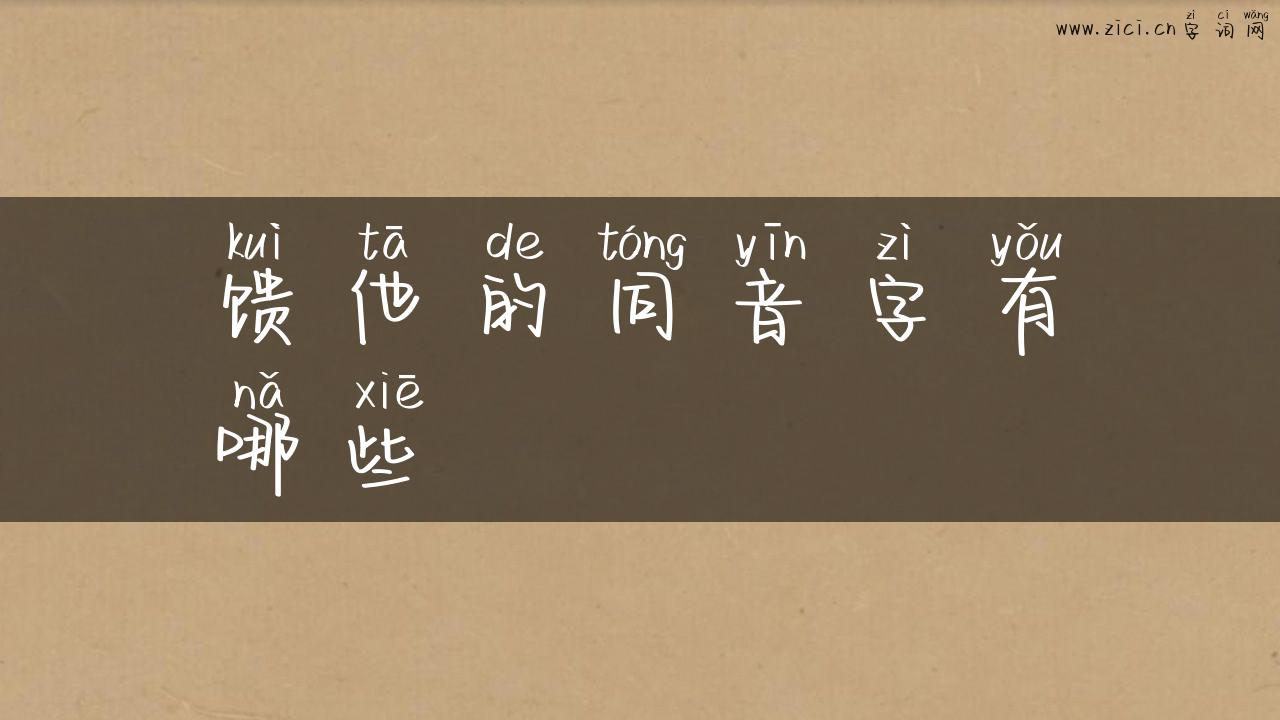 zì cí wǎng
www.zici.cn 字 词 网
kuì tā de tóng yīn zì yǒu
馈 他 的 同 音 字 有
nǎ xiē
哪 些